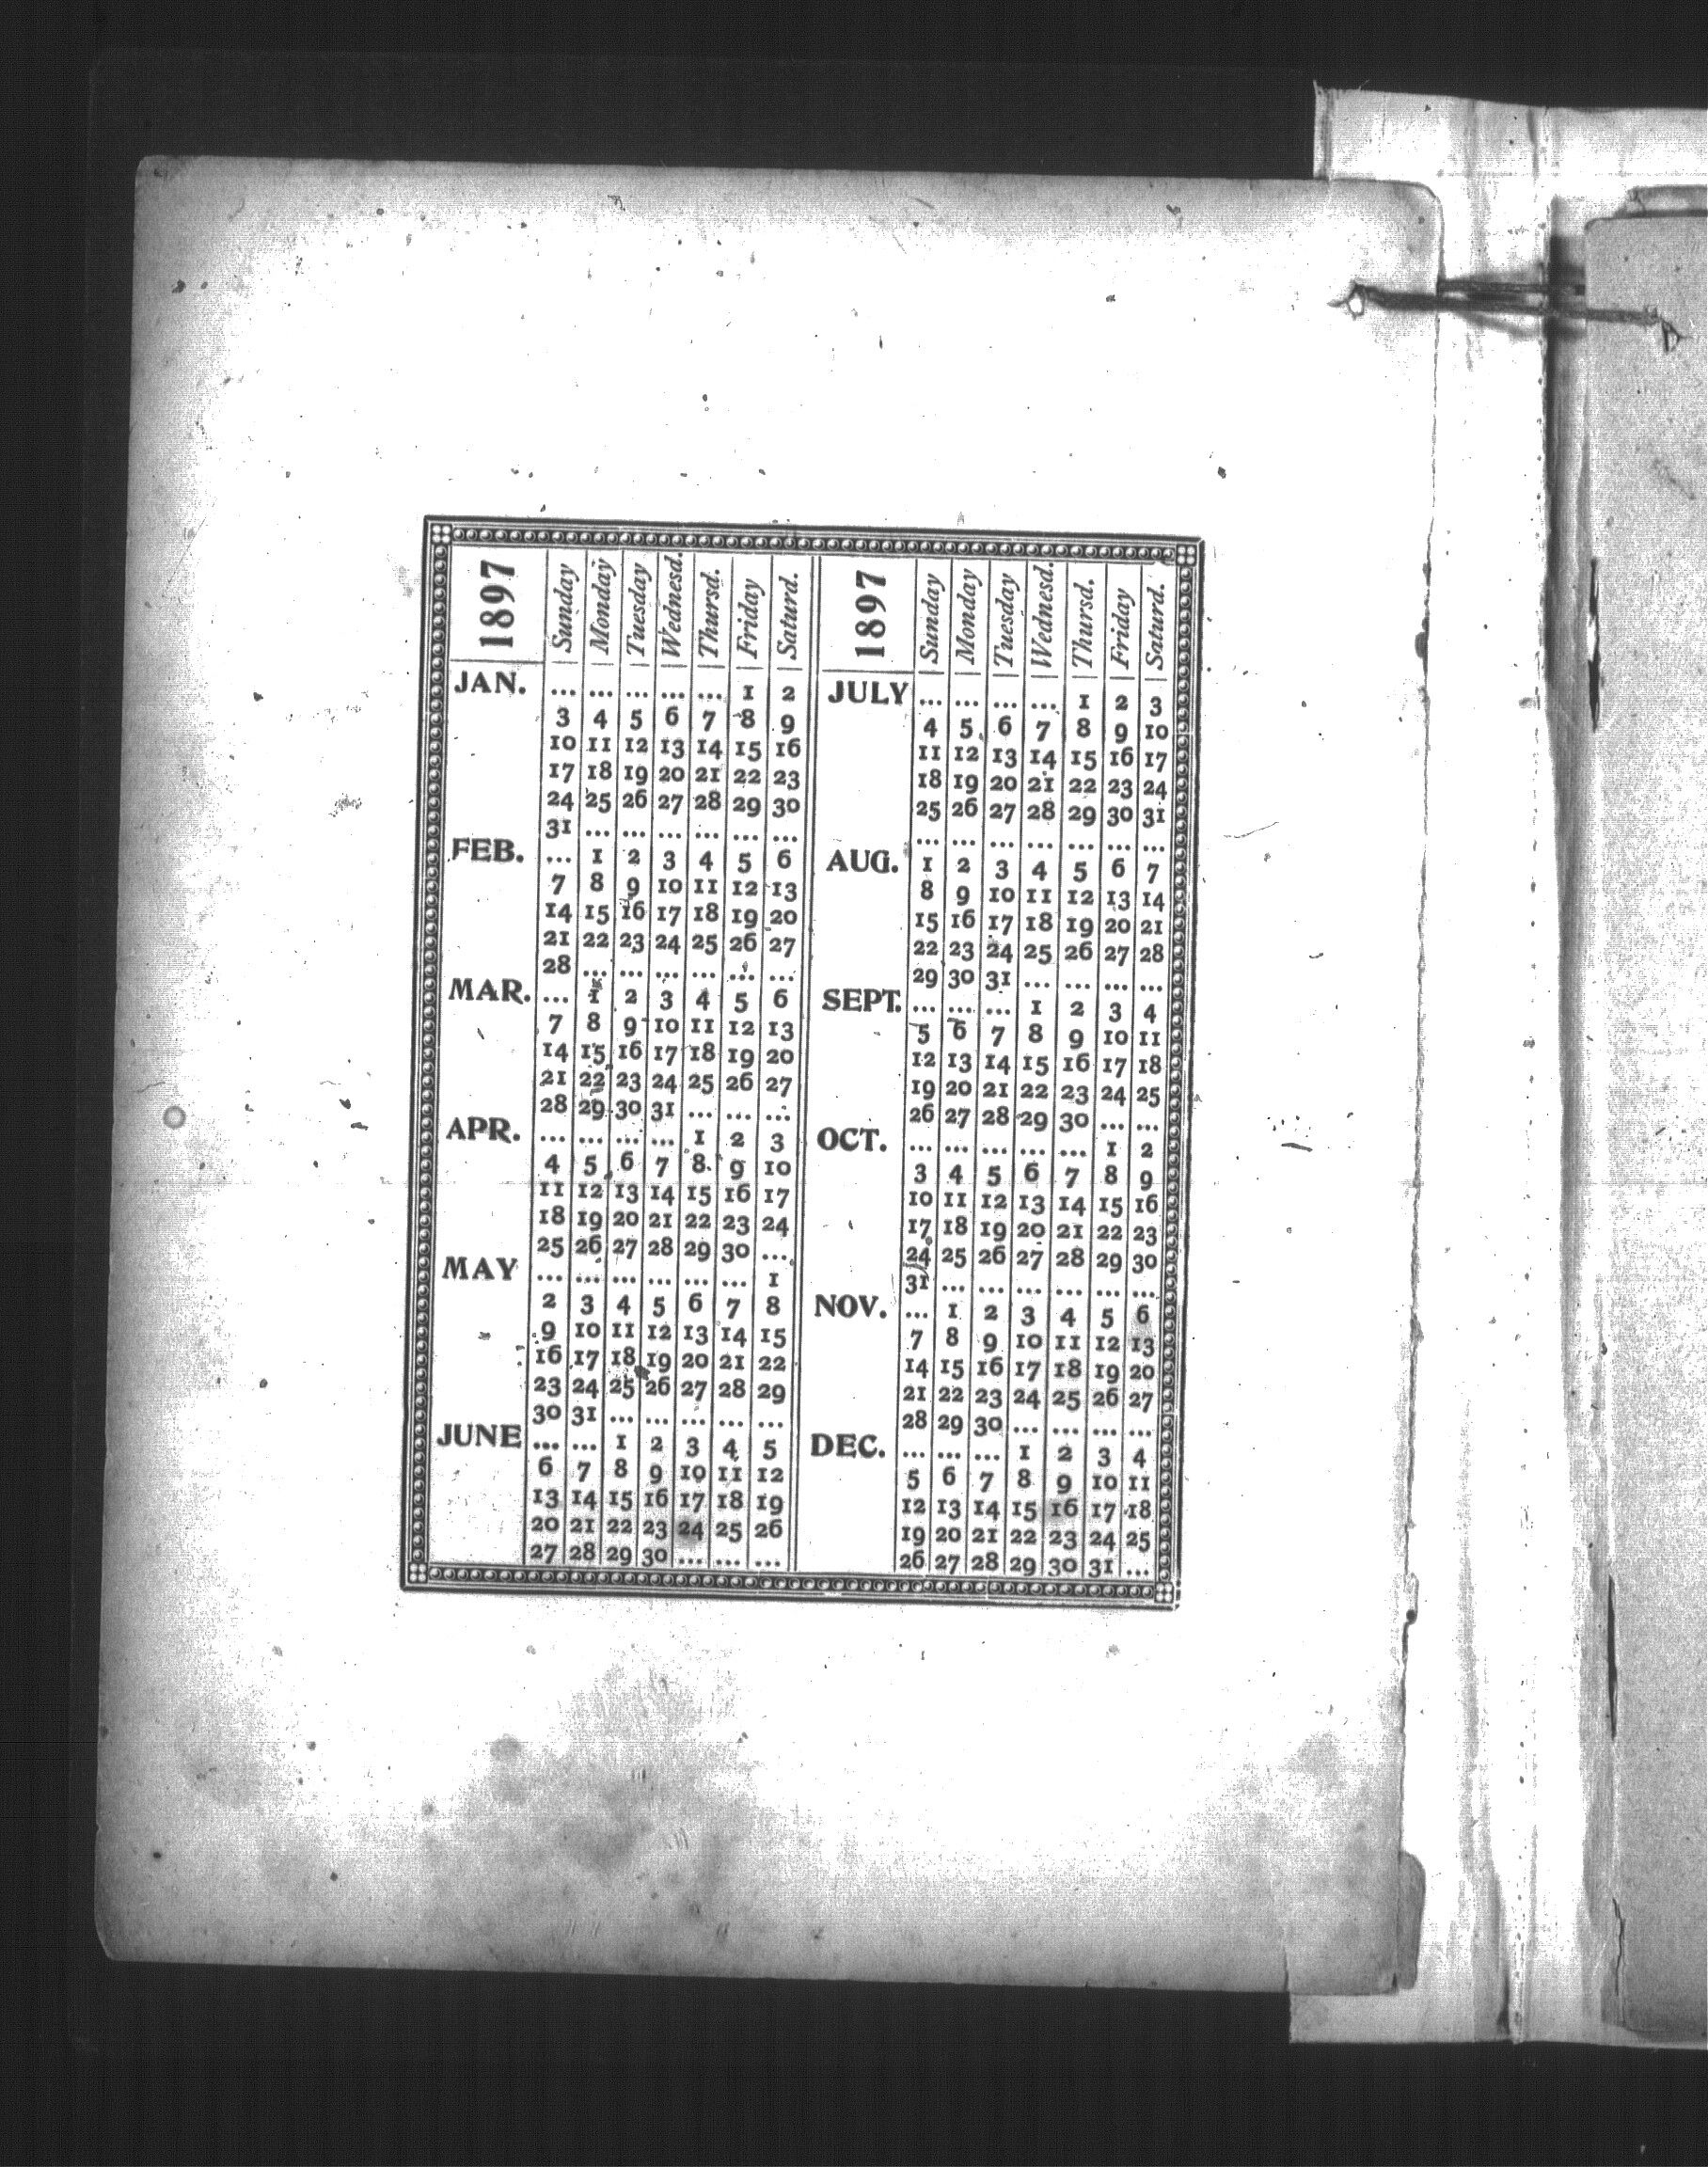 1897 Sunday Monday Tuesday Wednesd. Thursd. Friday Saturd.
JAN. ... ... ... ... ... 1 2
3 4 5 6 7 8 9
10 11 12 13 14 15 16
17 18 19 20 21 22 23
24 25 26 27 28 29 30
31 ... ... ... ... ... ...
FEB. ... 1 2 3 4 5 6
7 8 9 10 11 12 13
14 15 16 17 18 19 20
21 22 23 24 25 26 27
28 ... ... ... ... ... ...
MAR. ... 1 2 3 4 5 6
7 8 9 10 11 12 13
14 15 16 17 18 19 20
21 22 23 24 25 26 27
28 29 30 31 ... ... ...
APR. ... ... ... ... 1 2 3
4 5 6 7 8 9 10
11 12 13 14 15 16 17
18 19 20 21 22 23 24
25 26 27 28 29 30 ...
MAY ... ... ... ... ... ... 1
2 3 4 5 6 7 8
9 10 11 12 13 14 15
16 17 18 19 20 21 22
23 24 25 26 27 28 29
30 31 ... ... ... ... ...
JUNE ... ... 1 2 3 4 5
6 7 8 9 10 11 12
13 14 15 16 17 18 19
20 21 22 23 24 25 26
27 28 29 30 ... ... ...
1897 Sunday Monday Tuesday Wednesd. Thursd. Friday Saturd.
JULY ... ... ... ... 1 2 3
4 5 6 7 8 9 10
11 12 13 14 15 16 17
18 19 20 21 22 23 24
25 26 27 28 29 30 31
... ... ... ... ... ... ...
AUG. 1 2 3 4 5 6 7
8 9 10 11 12 13 14
15 16 17 18 19 20 21
22 23 24 25 26 27 28
29 30 31 ... ... ... ...
SEPT. ... ... ... 1 2 3 4
5 6 7 8 9 10 11
12 13 14 15 16 17 18
19 20 21 22 23 24 25
26 27 28 29 30 ... ...
OCT. ... ... ... ... ... 1 2
3 4 5 6 7 8 9
10 11 12 13 14 15 16
17 18 19 20 21 22 23
24 25 26 27 28 29 30
31 ... ... ... ... ... ...
NOV. ... 1 2 3 4 5 6
7 8 9 10 11 12 13
14 15 16 17 18 19 20
21 22 23 24 25 26 27
28 29 30 ... ... ... ...
DEC. ... ... ... 1 2 3 4
5 6 7 8 9 10 11
12 13 14 15 16 17 18
19 20 21 22 23 24 25
26 27 28 29 30 31 ...